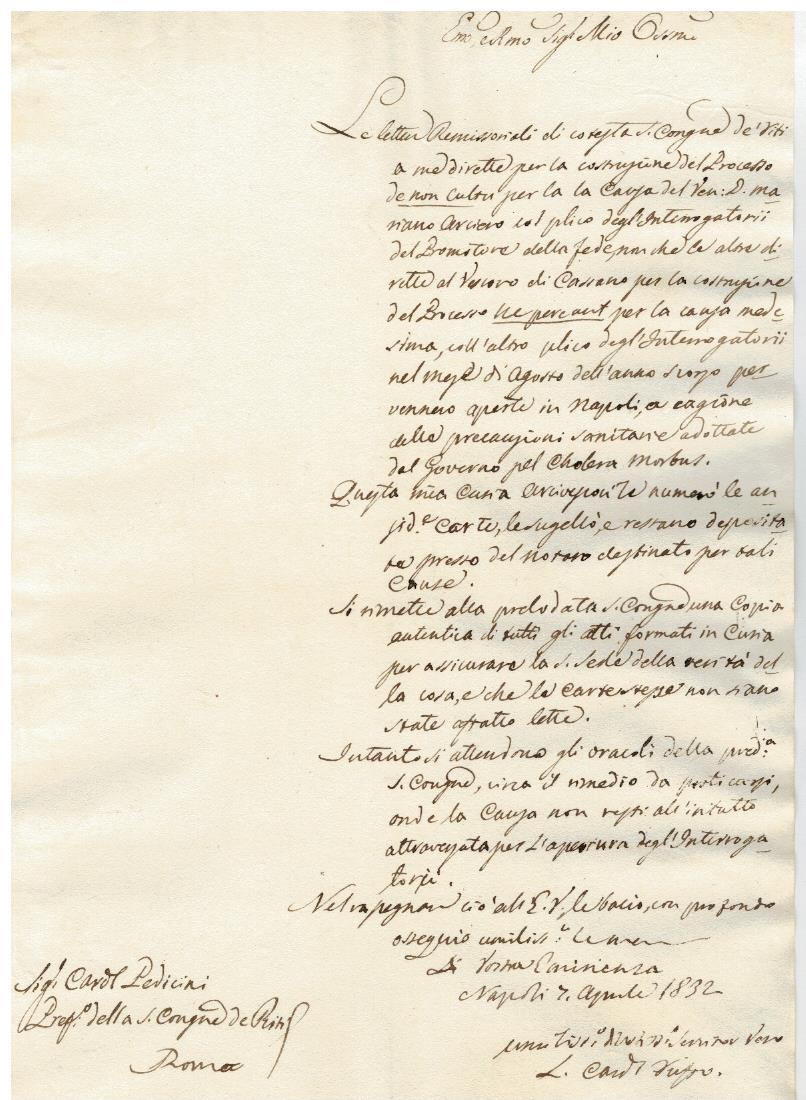 Emo, e Rmo Sigr Mio Ossmo
Le lettere Remissoriali di cotesta S. Congne de' Riti
a me dirette per la costruzione del Processo
de non cultu per la la Causa del Ven: D. Ma-
riano Arciero col plico degl'Interrogatorii
del Promotore della fede, non che le altre di-
rette al Vescovo di Cassano per la costruzione
del Processo ne pereant per la causa mede-
sima, coll'altro plico degl'Interrogatorii
nel mese di Agosto dell'anno scorso per-
vennero aperte in Napoli, a cagione
delle precauzioni sanitarie adottate
dal Governo pel Cholera Morbus.
Questa mia Curia Arcivescovile numerò le an-
zid.e Carte, le sugellò, e restano deposita-
te presso del notaro destinato per tali
Cause.
Si rimette alla prelodata S. Congne una Copia
autentica di tutti gli atti formati in Curia
per assicurare la S. Sede della verità del-
la cosa, e che le Carte stesse non siano
state affatto lette.
Intanto si attendono gli oracoli della pred.a
S. Congne, circa il rimedio da praticarsi,
onde la Causa non resti all'intutto
attraversata per l'apertura degl'Interroga-
torj.
Nel rapegnare ciò all'E. V., le bacio, con profondo
ossequio umiliss.e le mani
Di Vostra Eminenza
Napoli 7. Aprile 1832
Sigr Cardl Pedicini
Pref.o della S. Congne de Riti
Roma
umiliss.o Servitor Vero
L. Cardl Ruffo.